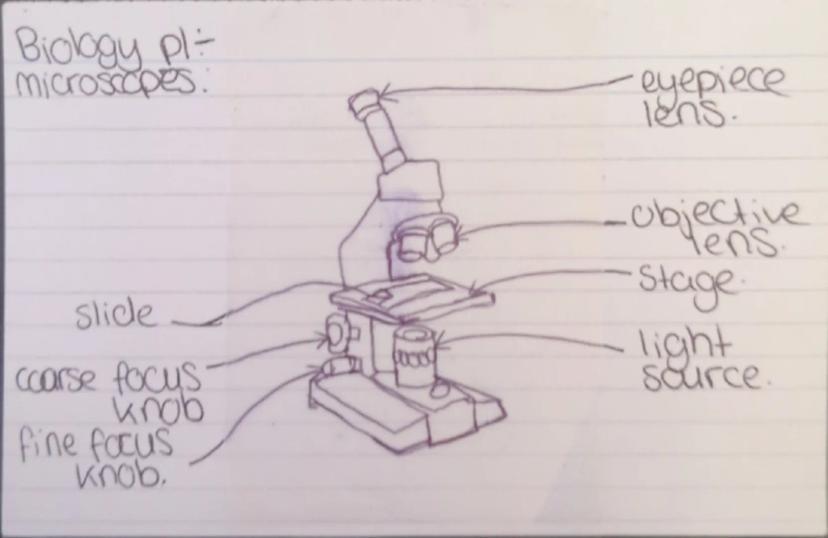 Biology p1:-
microscopes:
eyepiece
lens.
objective
lens.
stage.
light
source.
slide
coarse focus
knob
fine focus
knob.